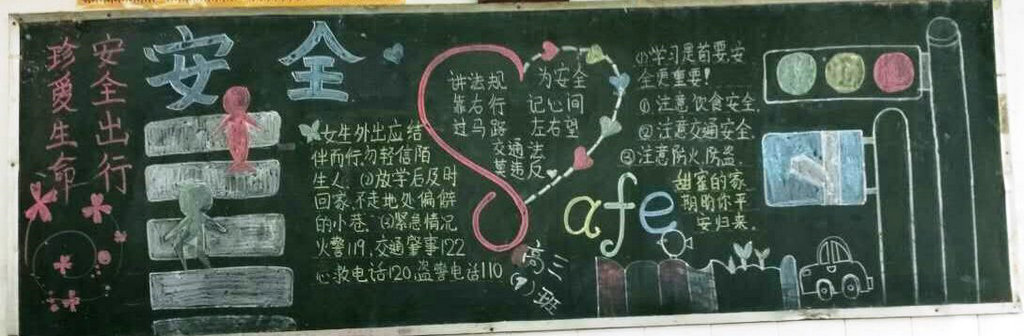 安全出行
珍爱生命
安全
女生外出应结
伴而行勿轻信陌
生人.(2)放学后及时
回家.不走地处偏僻
的小巷.(3)紧急情况
火警119.交通肇事122
心救电话120.盗警电话110
讲法规 为安全
靠右行 记心间
过马路 左右望
交通法
莫违反
Safe
高三
(9)班
①学习是首要,安
全更重要!
① 注意饮食安全.
② 注意交通安全.
③ 注意防火,防盗.
甜蜜的家
期盼你平
安归来.